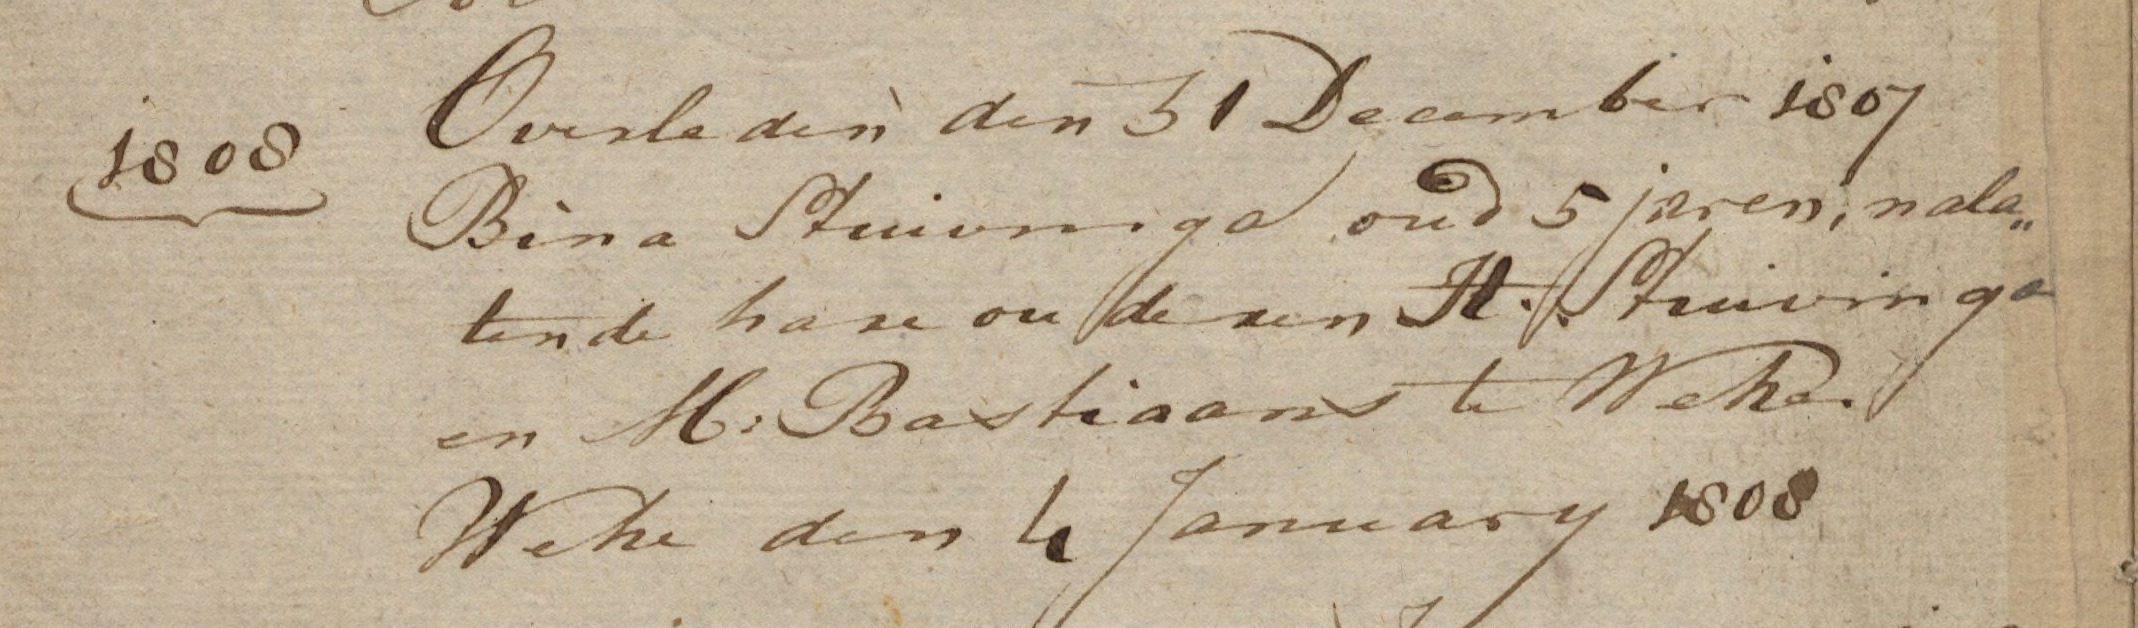 1808
Overleden den 31 December 1807
Bina Stuivinga oud 5 jaren, nala„
tende hare ouderen H. Stuivinga
en M: Bastiaans te Wehe.
Wehe den 4 January 1808